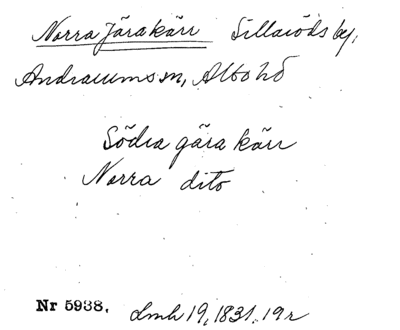 Norra Järakärr Sillaröds by,
Andrarums sn, Albo hd
Södra gära kärr
Norra dito
Nr 5938. Lmh 19, 1831. 19 r